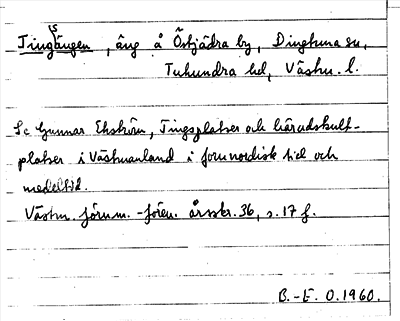 Tingsängen, äng å Östjädra by, Dingtuna sn,
Tuhundra hd, Västm. l.
Se Gunnar Ekström, Tingsplatser och häradskult-
platser i Västmanland i fornnordisk tid och
medeltid.
Västm. fornm.-fören. årsskr. 36, s. 17 f.
B.-E. O. 1960.